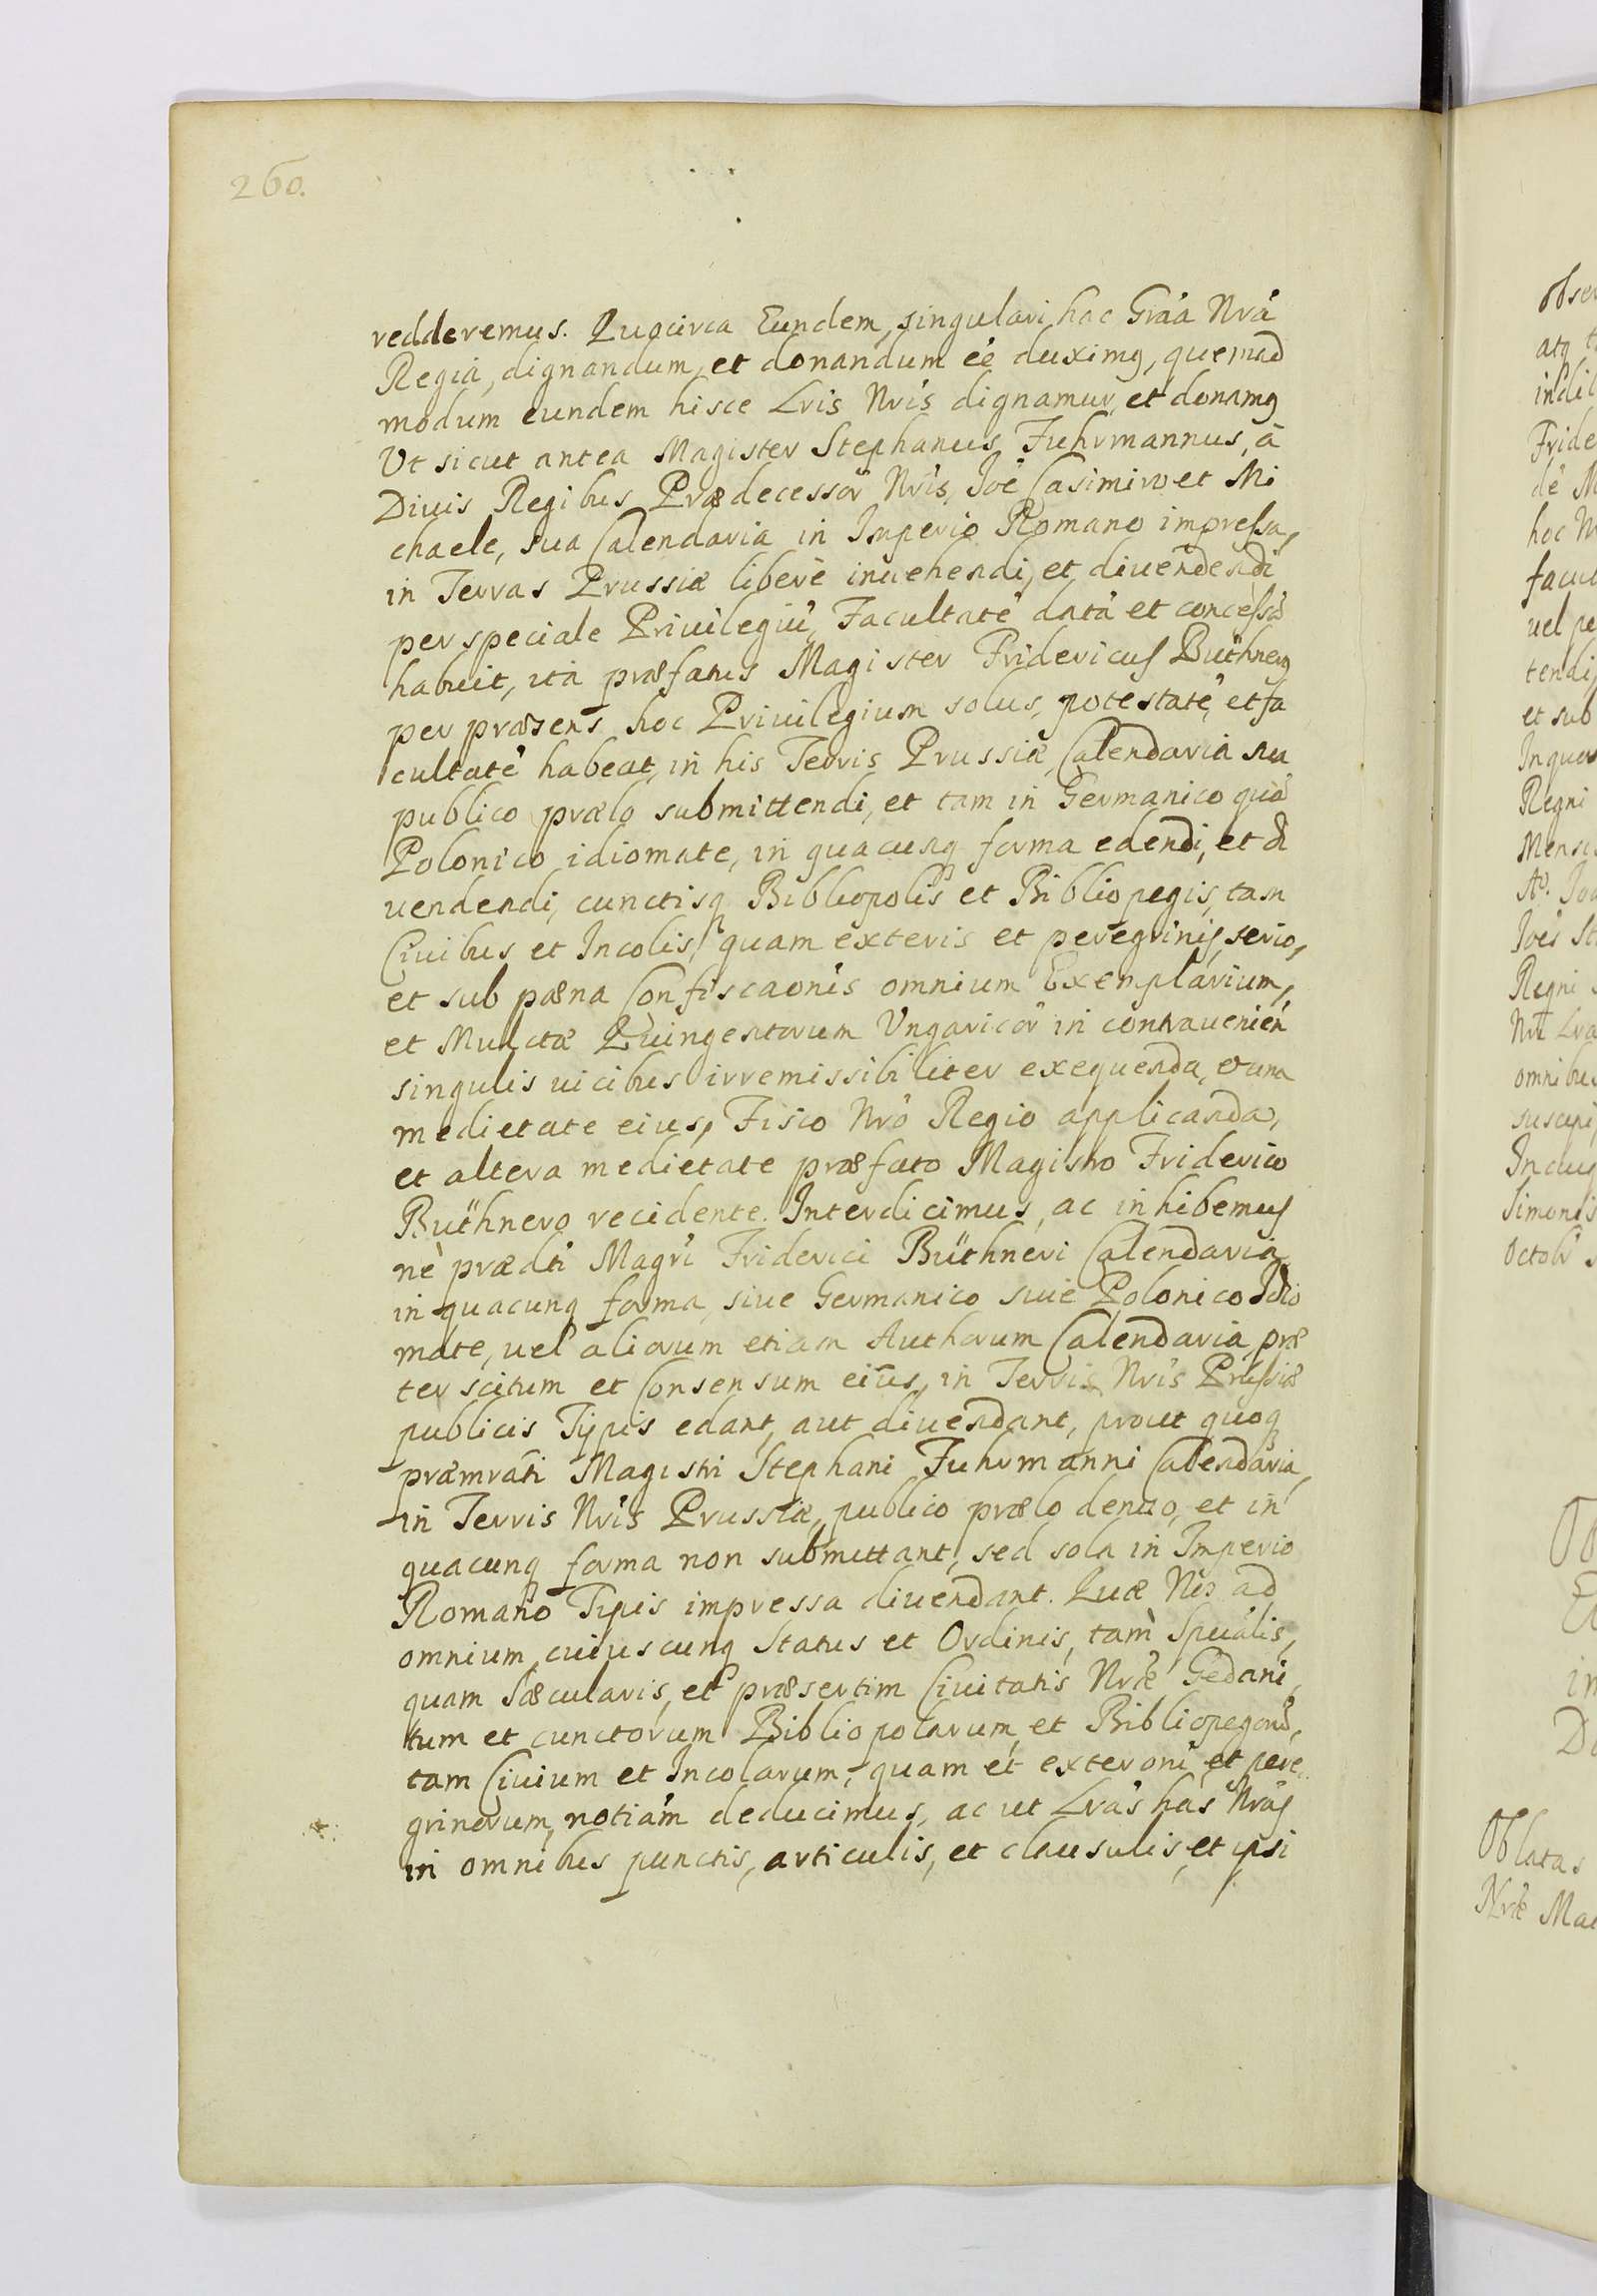 260.
redderemus. Quocirca Eundem, singulari hac Gráá Nrá
Regia, dignandum, et donandum eé duximꝯ, quemad
modum eundem hisce Lris Nris dignamur, et donamꝯ
Vt sicut antea Magister Stephanus Fuhrmannus, à
Diuis Regibus Prædecessor̃ Nris, Joe͂ Casimiro et Mi
chaele, sua Calendaria in Imperio Romano impressa,
in Terras Prussiæ liberè inuehendi, et diuendendi
per speciale Priuilegiu͂, Facultate͂ data͂ et concessa͂
habuit, ita præfatus Magister Fridericus Büthnerꝯ
per præsens hoc Priuilegium solus, potestate͂, et fa
cultate͂ habeat, in his Terris Prussiæ, Calendaria sua
publico prælo submittendi, et tam in Germanico qua͂
Polonico idiomate, in quacunq forma edendi, et di
uendendi, cunctisq Bibliopolis et Bibliopegis, tam
Ciuibus et Incolis, quam exteris et peregrinis, serio,
et sub pæna Confiscaonis omnium Exemplarium,
et Mulctæ Quingentorum Vngaricor̃ in contrauenien͂
singulis uicibus irremissibiliter exequenda, et una
medietate eius, Fisco Nro͂ Regio applicanda,
et altera medietate præfato Magistro Friderico
Büthnero recidente. Interdicimus, ac inhibemus
nè prædti Magri Friderici Büthneri Calendaria
in quacunq forma, siue Germanico siue Polonico Idio
mate, uel aliorum etiam Authorum Calendaria, præ
ter scitum et Consensum eius, in Terris Nris Prussiæ
publicis Typis edant, aut diuendant, prout quoq
præmrati Magistri Stephani Fuhrmanni Calendaria,
in Terris Nris Prussiæ, publico prælo denuo, et in
quacunq forma non submittant, sed sola in Imperio
Romano Typis impressa diuendant. Quæ Nos ad
omnium, cuiuscunq Status et Ordinis, tam Spuális,
quam Sæcularis, et præsertim Ciuitatis Nræ Gedani,
tum et cunctorum Bibliopolarum, et Bibliopegoru͂,
tam Ciuium et Incolarum, quam et exteroru͂ et pere
grinorum, notiam deducimus, ac ut Lras has Nras
in omnibus punctis, articulis, et clausulis, et ipsi
obser
atq
indil
Fride
de M
hoc
facul
uel pe
tendi
et sub
In quor
Regni
Mensis
Aº. Joa
Joes
Regni
Nri Lra
omnibus
suscepi
Simonis
Octobr
in
Oblatas
Nræ Mai